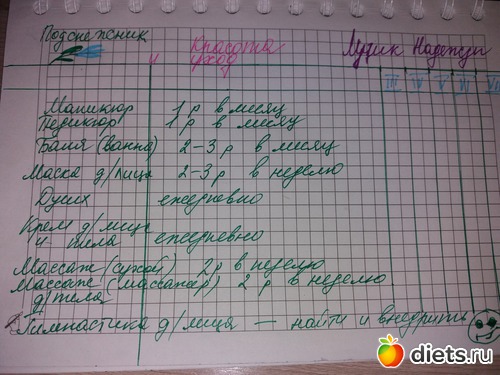 Подснежник
Красота
и уход
Мудик Надежды
III IV V VI VII
Маникюр 1 р в месяц
Педикюр 1 р в месяц
Баня (ванна) 2-3 р в месяц
Маска д/лица 2-3 р в неделю
Душ ежедневно
Крем д/лица
и тела ежедневно
Массаж (сухой) 2 р в неделю
Массаж (массажер) 2 р в неделю
д/тела
Гимнастика д/лица — найти и внедрить
diets.ru